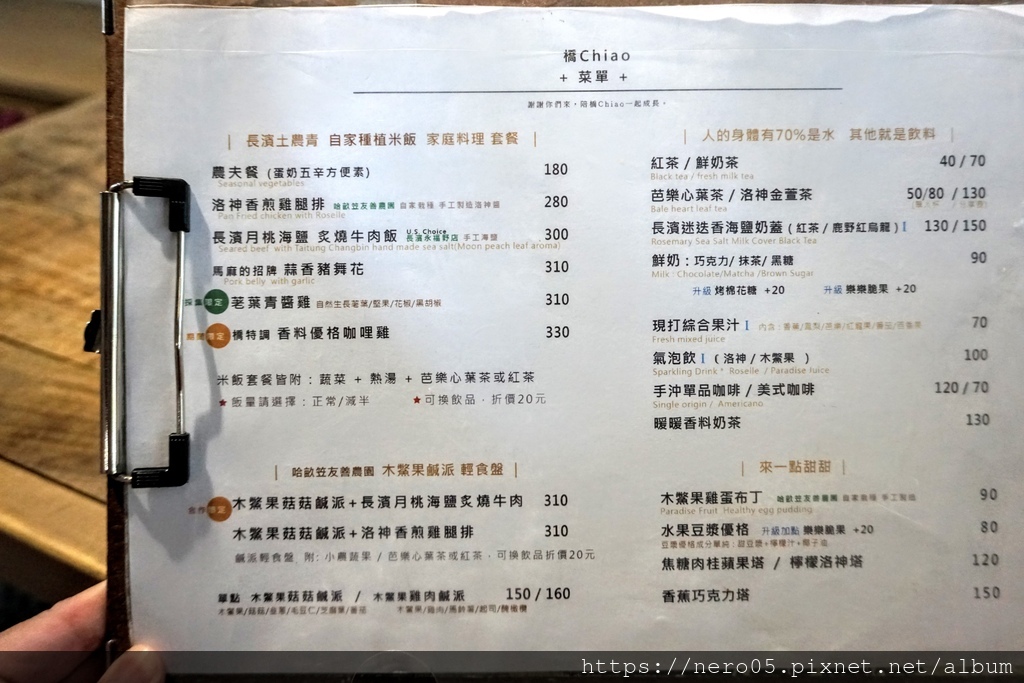 橋Chiao
+ 菜單 +
謝謝你們來，陪橋Chiao一起成長。
| 長濱土農青 自家種植米飯 家庭料理 套餐 |
農夫餐 (蛋奶五辛方便素) 180
Seasonal vegetables
洛神香煎雞腿排 哈畝笠友善農園 自家栽種 手工製造洛神醬 280
Pan Fried chicken with Roselle
長濱月桃海鹽 炙燒牛肉飯 U.S. Choice 長濱永福野店 手工海鹽 300
Seared beef with Taitung Changbin hand made sea salt(Moon peach leaf aroma)
馬麻的招牌 蒜香豬舞花 310
Pork belly with garlic
限定 荖葉青醬雞 自然生長荖葉/堅果/花椒/黑胡椒 310
限定 橋特調 香料優格咖哩雞 330
米飯套餐皆附：蔬菜 + 熱湯 + 芭樂心葉茶或紅茶
★飯量請選擇：正常/減半 ★可換飲品，折價20元
| 哈畝笠友善農園 木鱉果鹹派 輕食盤 |
合作限定 木鱉果菇菇鹹派+長濱月桃海鹽炙燒牛肉 310
木鱉果菇菇鹹派+洛神香煎雞腿排 310
鹹派輕食盤 附: 小農蔬果 / 芭樂心葉茶或紅茶，可換飲品折價20元
單點 木鱉果菇菇鹹派 / 木鱉果雞肉鹹派 150 / 160
木鱉果/菇菇/堅果/毛豆仁/芝麻葉/蕃茄 木鱉果/雞肉/馬鈴薯/起司/醃橄欖
| 人的身體有70%是水 其他就是飲料 |
紅茶 / 鮮奶茶 40 / 70
Black tea / fresh milk tea
芭樂心葉茶 / 洛神金萱茶 50/80 / 130
Bale heart leaf tea
長濱迷迭香海鹽奶蓋 ( 紅茶 / 鹿野紅烏龍 ) I 130 / 150
Rosemary Sea Salt Milk Cover Black Tea
鮮奶：巧克力/ 抹茶/ 黑糖 90
Milk : Chocolate/Matcha /Brown Sugar
升級 烤棉花糖 +20 升級 樂樂脆果 +20
現打綜合果汁 I 70
Fresh mixed juice
氣泡飲 I ( 洛神 / 木鱉果 ) 100
Sparkling Drink * Roselle / Paradise Juice
手沖單品咖啡 / 美式咖啡 120 / 70
Single origin / Americano
暖暖香料奶茶 130
| 來一點甜甜 |
木鱉果雞蛋布丁 哈畝笠友善農園 自家栽種 手工製造 90
Paradise Fruit Healthy egg pudding
水果豆漿優格 升級加點 樂樂脆果 +20 80
焦糖肉桂蘋果塔 / 檸檬洛神塔 120
香蕉巧克力塔 150
https://nero05.pixnet.net/album